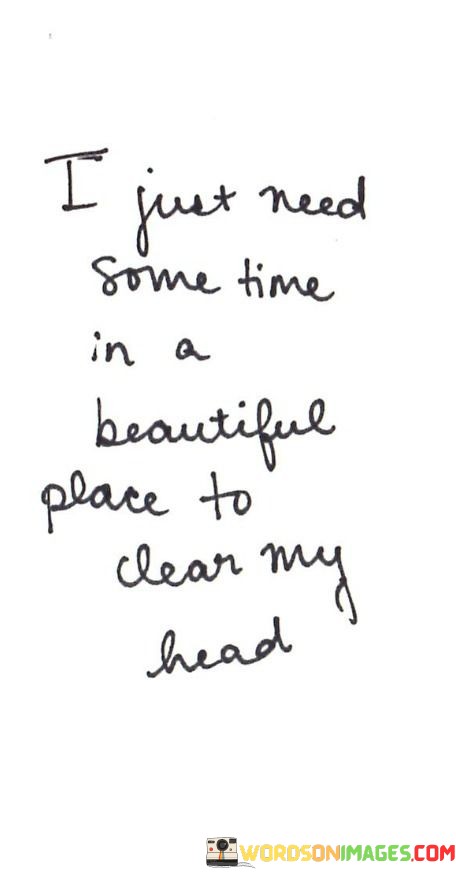 I just need
some time
in a
beautiful
place to
clear my
head
WORDSONIMAGES.COM